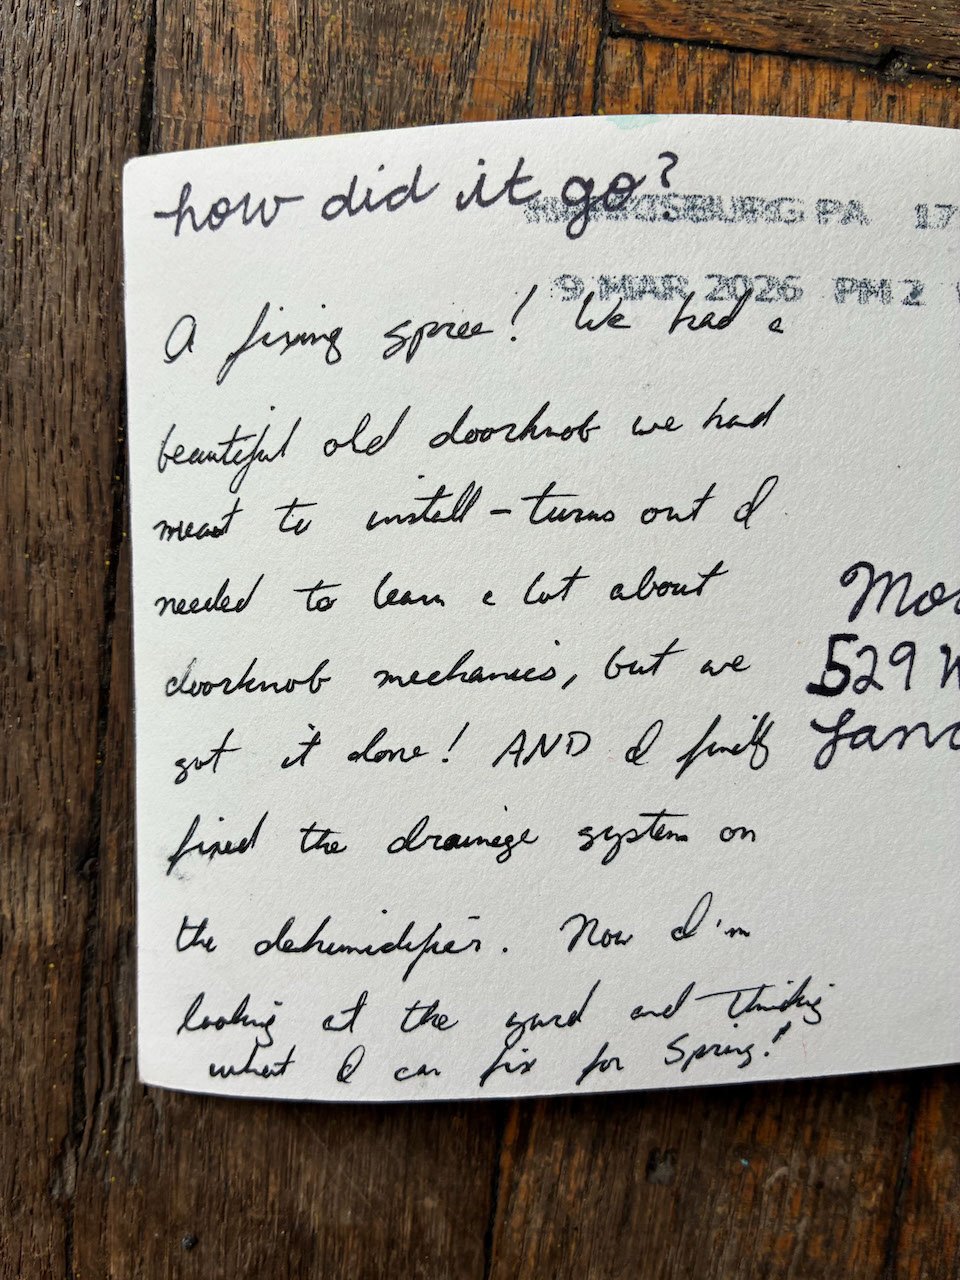 how did it go?
HARRISBURG PA 17
9 MAR 2026 PM 2
A fixing spree! We had a
beautiful old doorknob we had
meant to install - turns out I
needed to learn a lot about
doorknob mechanics, but we
got it done! AND I finally
fixed the drainage system on
the dehumidifier. Now I'm
looking at the yard and thinking
what I can fix for Spring!
529 W